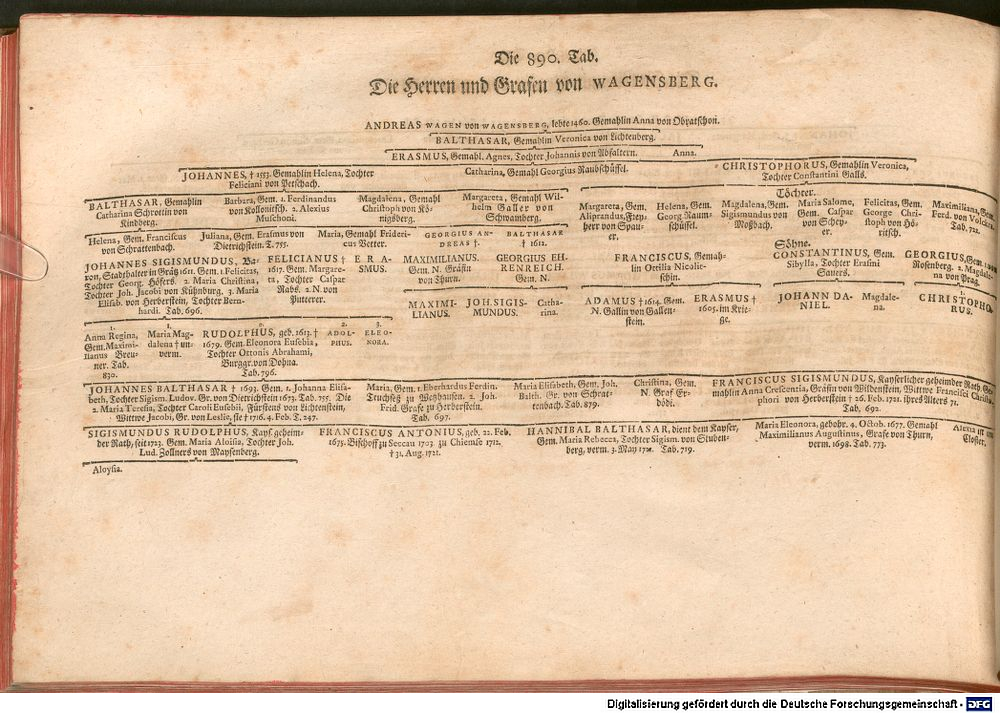 Die 890. Tab.
Die Herren und Grafen von WAGENSBERG.
ANDREAS WAGEN von WAGENSBERG, lebte 1460. Gemahlin Anna von Obratschon.
BALTHASAR, Gemahlin Veronica von Lichtenberg.
ERASMUS, Gemahl. Agnes, Tochter Johannis von Absaltern.
Anna.
JOHANNES, † 1553. Gemahlin Helena, Tochter
Feliciani von Petschach.
Catharina, Gemahl Georgius Raubschüssel.
CHRISTOPHORUS, Gemahlin Veronica,
Tochter Constantini Galls.
BALTHASAR, Gemahlin
Catharina Schrottin von
Kindberg.
Barbara, Gem. 1. Ferdinandus
von Kollonitsch. 2. Alexius
Muschoni.
Magdalena, Gemahl
Christoph von Kö-
nigsberg.
Margareta, Gemahl Wil-
helm Galler von
Schwamberg.
Töchter.
Margareta, Gem.
Aliprandus, Frey-
herr von Spau-
er.
Helena, Gem.
Georg Raum-
schüssel.
Magdalena, Gem.
Sigismundus von
Moßbach.
Maria Salome,
Gem. Caspar
von Schey-
er.
Felicitas, Gem.
George Chri-
stoph von Hö-
ritsch.
Maximiliana, Gem.
Ferd. von
Tab. 722.
Helena, Gem. Franciscus
von Schrattenbach.
Juliana, Gem. Erasmus von
Dietrichstein. T. 755.
Maria, Gemahl Frideri-
cus Vetter.
GEORGIUS AN-
DREAS †.
BALTHASAR
† 1612.
Söhne.
JOHANNES SIGISMUNDUS, Ba-
ron, Stadthalter in Grätz 1611. Gem. 1. Felicitas,
Tochter Georg. Höfers. 2. Maria Christina,
Tochter Joh. Jacobi von Kühnburg. 3. Maria
Elisab. von Herberstein, Tochter Bern-
hardi. Tab. 696.
FELICIANUS †
1617. Gem. Margare-
ta, Tochter Caspar
Rabs. 2. N. von
Putterer.
ERA-
SMUS.
MAXIMILIANUS.
Gem. N. Gräfin
von Thurn.
GEORGIUS EH-
RENREICH.
Gem. N.
FRANCISCUS, Gemah-
lin Ottilia Nicolit-
schin.
CONSTANTINUS, Gem.
Sibylla, Tochter Erasmi
Sauers.
GEORGIUS, Gem. 1.
Rosenberg. 2. Magdale-
na von Prag.
MAXIMI-
LIANUS.
JOH. SIGIS-
MUNDUS.
Catha-
rina.
ADAMUS † 1614. Gem.
N. Gallin von Gallen-
stein.
ERASMUS †
1605. im Krie-
ge.
JOHANN DA-
NIEL.
Magdale-
na.
1.
CHRISTOPHO-
RUS.
1.
Anna Regina,
Gem. Maximi-
lianus Breu-
ner. Tab.
830.
1.
Maria Mag-
dalena † un-
verm.
2.
RUDOLPHUS, geb. 1613. †
1679. Gem. Eleonora Eusebia,
Tochter Ottonis Abrahami,
Burggr. von Dohna.
Tab. 796.
2.
ADOL-
PHUS.
3.
ELEO-
NORA.
JOHANNES BALTHASAR † 1693. Gem. 1. Johanna Elisa-
beth, Tochter Sigism. Ludov. Gr. von Dietrichstein 1673. Tab. 755. Die
2. Maria Teresia, Tochter Caroli Eusebii, Fürstens von Lichtenstein,
Wittwe Jacobi, Gr. von Leslie, sie † 1716. 4. Feb. T. 247.
Maria, Gem. 1. Eberhardus Ferdin.
Truchseß zu Wetzhausen. 2. Joh.
Frid. Grafe zu Herberstein.
Tab. 697.
Maria Elisabeth, Gem. Joh.
Balth. Gr. von Schrat-
tenbach. Tab. 879.
Christina, Gem.
N. Graf Er-
bödi.
FRANCISCUS SIGISMUNDUS, Kayserlicher geheimder Rath, Ge-
mahlin Anna Crescentia, Gräfin von Wildenstein, Wittwe Francisci Christo-
phori von Herberstein † 26. Feb. 1721. ihres Alters 71.
Tab. 692.
SIGISMUNDUS RUDOLPHUS, Kays. geheim-
der Rath, seit 1723. Gem. Maria Aloisia, Tochter Joh.
Lud. Zollners von Maysenberg.
FRANCISCUS ANTONIUS, geb. 22. Feb.
1675. Bischoff zu Seccau 1703 zu Chiemse 1712.
† 31. Aug. 1721.
HANNIBAL BALTHASAR, dient dem Kayser,
Gem. Maria Rebecca, Tochter Sigism. von Stuben-
berg, verm. 3. May 1721. Tab. 719.
Maria Eleonora, gebohr. 4. Octob. 1677. Gemahl
Maximilianus Augustinus, Grafe von Thurn,
verm. 1698. Tab. 773.
Alexia ist im
Closter.
Aloysia.
Digitalisierung gefördert durch die Deutsche Forschungsgemeinschaft - DFG